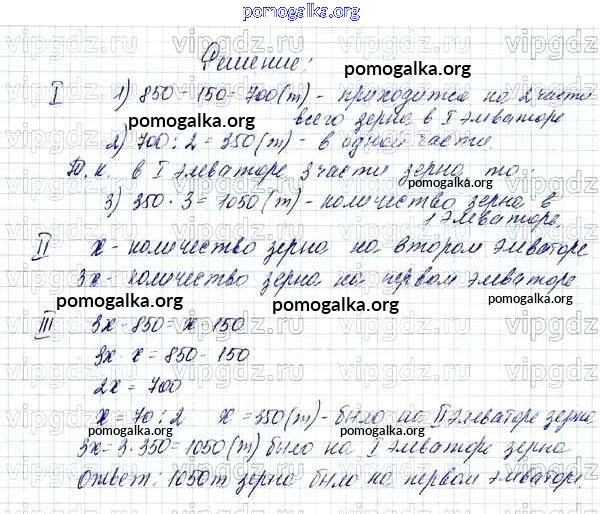 pomogalka.org
Решение:
pomogalka.org
I 1) 850 - 150 - 700 (т) - приходится на 2 части
всего зерна в I элеваторе
pomogalka.org
2) 700 : 2 = 350 (т) - в одной части.
Т.к. в I элеваторе 3 части зерна то:
pomogalka.org
3) 350 · 3 = 1050 (т) - количество зерна в
1 элеваторе,
II x - количество зерна на втором элеваторе
3x - количество зерна на первом элеваторе
pomogalka.org pomogalka.org pomogalka.org
III 3x - 850 = x - 150
3x - x = 850 - 150
2x = 700
pomogalka.org pomogalka.org
x = 70 : 2 x = 350 (т) - было на II элеваторе зерна
3x = 3 · 350 = 1050 (т) было на I элеваторе зерна
pomogalka.org
Ответ: 1050 т зерна было на первом элеваторе.
vipgdz.ru vipgdz.ru vipgdz.ru vipgdz.ru